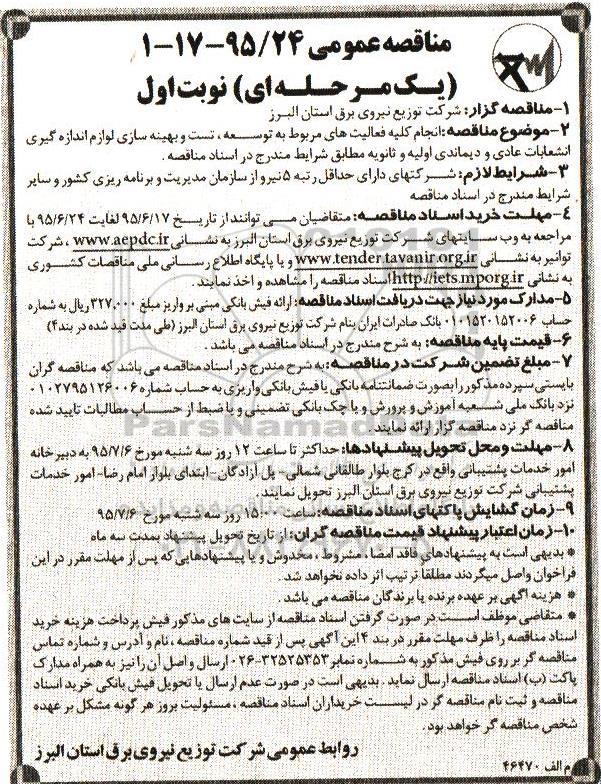 مناقصه عمومی ۹۵/۲۴-۱۷-۱
(یک مرحله ای) نوبت اول
۱-مناقصه گزار: شرکت توزیع نیروی برق استان البرز
۲-موضوع مناقصه: انجام کلیه فعالیت های مربوط به توسعه، تست و بهینه سازی لوازم اندازه گیری
انشعابات عادی و دیماندی اولیه و ثانویه مطابق شرایط مندرج در اسناد مناقصه.
۳-شرایط لازم: شرکتهای دارای حداقل رتبه ۵ نیرو از سازمان مدیریت و برنامه ریزی کشور و سایر
شرایط مندرج در اسناد مناقصه
۴-مهلت خرید اسناد مناقصه: متقاضیان می توانند از تاریخ ۹۵/۶/۱۷ لغایت ۹۵/۶/۲۴ با
مراجعه به وب سایتهای شرکت توزیع نیروی برق استان البرز به نشانی www.aepdc.ir، شرکت
توانیر به نشانی www.tender.tavanir.org.ir و یا پایگاه اطلاع رسانی ملی مناقصات کشوری
به نشانی http://iets.mporg.ir اسناد مناقصه را مشاهده و اخذ نمایند.
۵-مدارک مورد نیاز جهت دریافت اسناد مناقصه: ارائه فیش بانکی مبنی بر واریز مبلغ ۳۲۷,۰۰۰ ریال به شماره
حساب ۰۱۰۱۵۲۰۱۵۲۰۰۶ بانک صادرات ایران بنام شرکت توزیع نیروی برق استان البرز (طی مدت قید شده در بند۴)
۶-قیمت پایه مناقصه: به شرح مندرج در اسناد مناقصه می باشد.
۷-مبلغ تضمین شرکت در مناقصه: به شرح مندرج در اسناد مناقصه می باشد که مناقصه گران
بایستی سپرده مذکور را بصورت ضمانتنامه بانکی یا فیش بانکی واریزی به حساب شماره ۰۱۰۲۷۹۵۱۲۶۰۰۶
نزد بانک ملی شعبه آموزش و پرورش و یا چک بانکی تضمینی و یا ضبط از حساب مطالبات تایید شده
مناقصه گر نزد مناقصه گزار ارائه نمایند.
۸-مهلت و محل تحویل پیشنهادها: حداکثر تا ساعت ۱۲ روز سه شنبه مورخ ۹۵/۷/۶ به دبیرخانه
امور خدمات پشتیبانی واقع در کرج بلوار طالقانی شمالی- پل آزادگان-ابتدای بلوار امام رضا- امور خدمات
پشتیبانی شرکت توزیع نیروی برق استان البرز تحویل نمایند.
۹-زمان گشایش پاکتهای اسناد مناقصه: ساعت ۱۵:۰۰ روز سه شنبه مورخ ۹۵/۷/۶
۱۰-زمان اعتبار پیشنهاد قیمت مناقصه گران: از تاریخ تحویل پیشنهاد بمدت سه ماه
* بدیهی است به پیشنهادهای فاقد امضا، مشروط، مخدوش و یا پیشنهادهایی که پس از مهلت مقرر در این
فراخوان واصل میگردند مطلقا ترتیب اثر داده نخواهد شد.
* هزینه آگهی بر عهده برنده یا برندگان مناقصه می باشد.
* متقاضی موظف است در صورت گرفتن اسناد مناقصه از سایت های مذکور فیش پرداخت هزینه خرید
اسناد مناقصه را ظرف مهلت مقرر در بند ۴ این آگهی پس از قید شماره مناقصه، نام و آدرس و شماره تماس
مناقصه گر بر روی فیش مذکور به شماره نمابر ۳۲۵۲۵۳۵۳-۰۲۶ ارسال و اصل آن را نیز به همراه مدارک
پاکت (ب) اسناد مناقصه ارسال نماید. بدیهی است در صورت عدم ارسال یا تحویل فیش بانکی خرید اسناد
مناقصه و ثبت نام مناقصه گر در لیست خریداران اسناد مناقصه، مسئولیت بروز هر گونه مشکل بر عهده
شخص مناقصه گر خواهد بود.
روابط عمومی شرکت توزیع نیروی برق استان البرز
م الف ۴۶۴۷۰